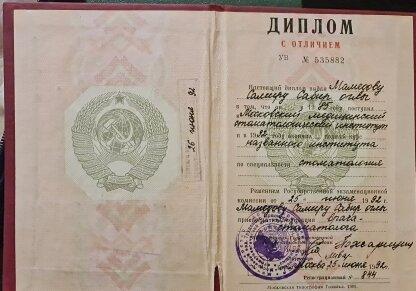 26 июня 92
ДИПЛОМ
С ОТЛИЧИЕМ
УВ № 535882
Настоящий диплом выдан Мамедову
Самиру Сабир оглы
в том, что он в 1985 поступил
в Московский медицинский
стоматологический институт
и в 1992 году окончил полный курс
названного института
по специальности стоматология
Решением Государственной экзаменационной
комиссии от 25 июня 1992 г.
Мамедову Самиру Сабир оглы
врача-
стоматолога
Москва 25 июня 1992 г.
Регистрационный № 844
Московская типография Гознака. 1991.